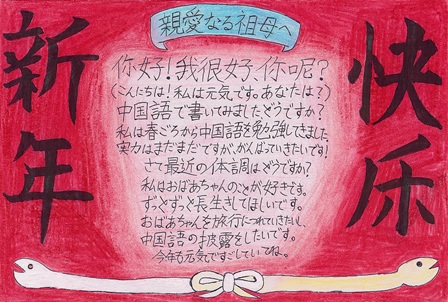 親愛なる祖母へ
新年
快乐
你好!我很好、你呢?
(こんにちは!私は元気です。あなたは?)
中国語で書いてみましたどうですか?
私は春ごろから中国語を勉強してきました
実力はまだまだですが、がんばっていきたいです!
さて最近の体調はどうですか?
私はおばあちゃんのことが好きです。
ずっとずっと長生きしてほしいです。
おばあちゃんを旅行につれていきたいし、
中国語の披露をしたいです。
今年も元気ですごしていてね。